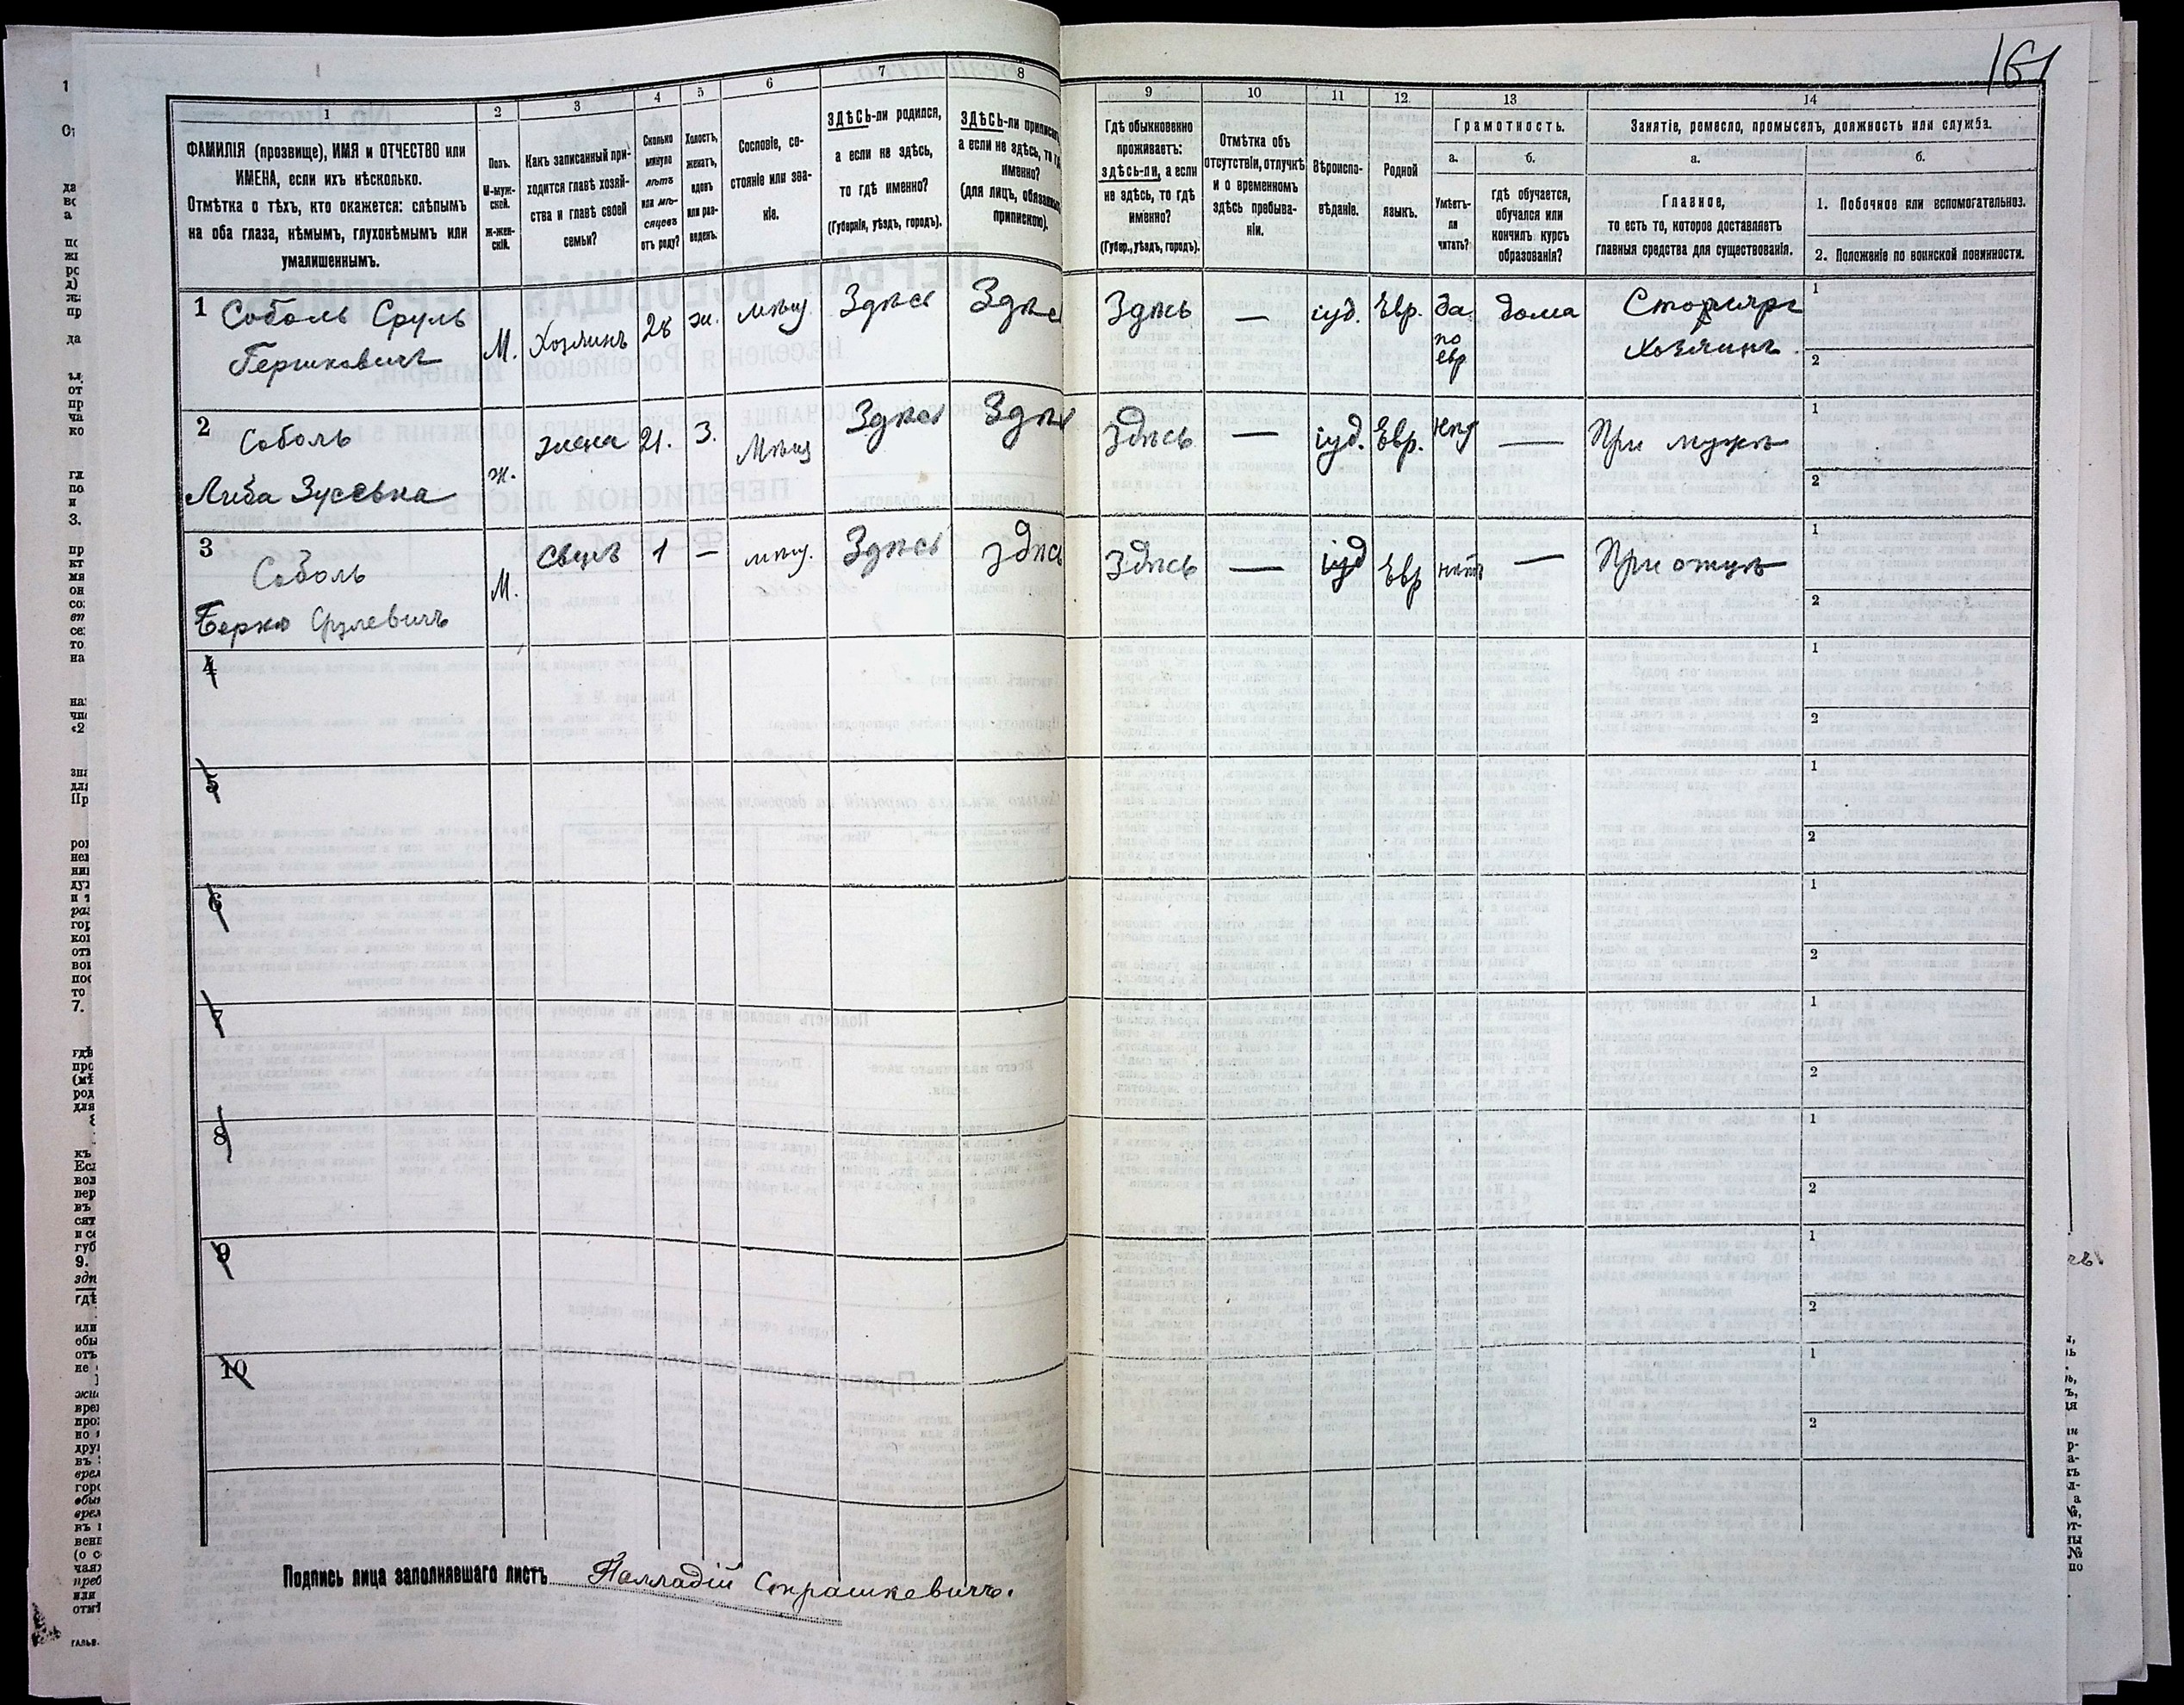 161
1
2
3
4
5
6
7
8
9
10
11
12
13
14
ФАМИЛІЯ (прозвище), ИМЯ и ОТЧЕСТВО или
ИМЕНА, если ихъ нѣсколько.
Отмѣтка о тѣхъ, кто окажется: слѣпымъ
на оба глаза, нѣмымъ, глухонѣмымъ или
умалишеннымъ.
Полъ.
М-муж-
ской.
Ж-жен-
скій.
Какъ записанный при-
ходится главѣ хозяй-
ства и главѣ своей
семьи?
Сколько
минуло
лѣтъ
или мѣ-
сяцевъ
отъ роду?
Холостъ,
женатъ,
вдовъ
или раз-
веденъ.
Сословіе, со-
стояніе или зва-
ніе.
ЗДѢСЬ-ли родился,
а если не здѣсь,
то гдѣ именно?
(Губернія, уѣздъ, городъ).
ЗДѢСЬ-ли приписанъ,
а если не здѣсь, то гдѣ
именно?
(для лицъ, обязанныхъ
припискою).
Гдѣ обыкновенно
проживаетъ:
здѣсь-ли, а если
не здѣсь, то гдѣ
именно?
(Губер., уѣздъ, городъ).
Отмѣтка объ
отсутствіи, отлучкѣ
и о временномъ
здѣсь пребыва-
ніи.
Вѣроиспо-
вѣданіе.
Родной
языкъ.
Грамотность.
а.
б.
Умѣетъ-
ли
читать?
гдѣ обучается,
обучался или
кончилъ курсъ
образованія?
Занятіе, ремесло, промыселъ, должность или служба.
а.
б.
Главное,
то есть то, которое доставляетъ
главныя средства для существованія.
1. Побочное или вспомогательное.
2. Положеніе по воинской повинности.
1 Соболь Сруль
Гершковичъ
М. Хозяинъ 28 ж. мѣщ. Здѣсь Здѣсь Здѣсь — іуд. Евр. да по евр дома Столяръ
Хозяинъ
1
2
2 Соболь
Либа Зусевна
ж. жена 21. З. Мѣщ Здѣсь Здѣсь Здѣсь — іуд. Евр. нѣт — При мужѣ
1
2
3 Соболь
Берко Срулевичъ
М. Сынъ 1 — мѣщ. Здѣсь здѣсь Здѣсь — іуд Евр нѣтъ — При отцѣ
1
2
4
1
2
5
1
2
6
1
2
7
1
2
8
1
2
9
1
2
10
1
2
Подпись лица заполнявшаго листъ Палладій Страшкевичъ.